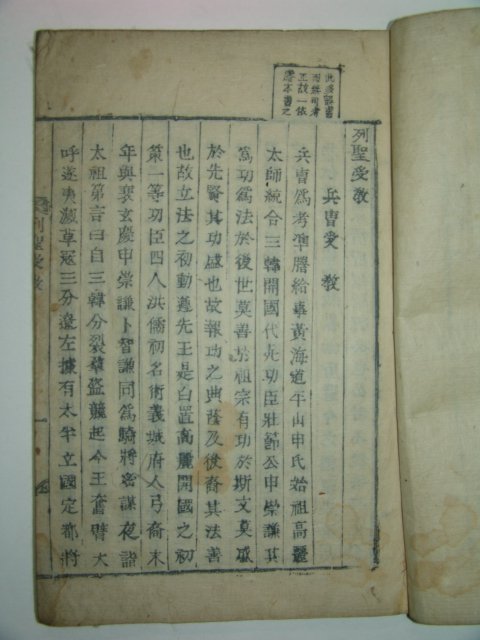 列聖受敎
兵曹受 敎
兵曹爲考準謄給事黃海道平山申氏始祖高麗
太師統合三韓開國代死功臣壯節公申崇謙其
爲功爲法於後世莫善於祖宗有功於斯文莫盛
於先賢其功盛也故報功之典蔭及後裔其法善
也故立法之初動遵先王是白置高麗開國之初
第一等功臣四人洪儒初名術義城府人弓裔末
年與裵玄慶申崇謙卜智謙同爲騎將密謀夜詣
太祖第言曰自三韓分裂羣盜競起今王奮臂大
呼遂夷滅草冠三分遼左據有太半立國定都將
列聖受敎
一